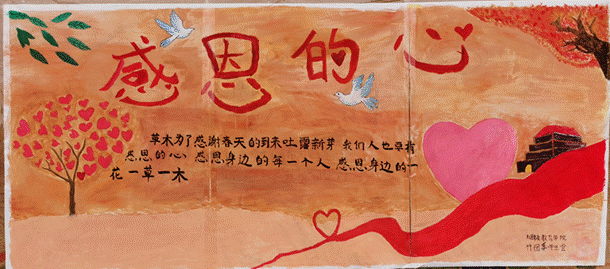 感恩的心
草木为了感谢春天的到来吐露新芽 我们人也要有
感恩的心 感恩身边的每一个人 感恩身边的一
花一草一木